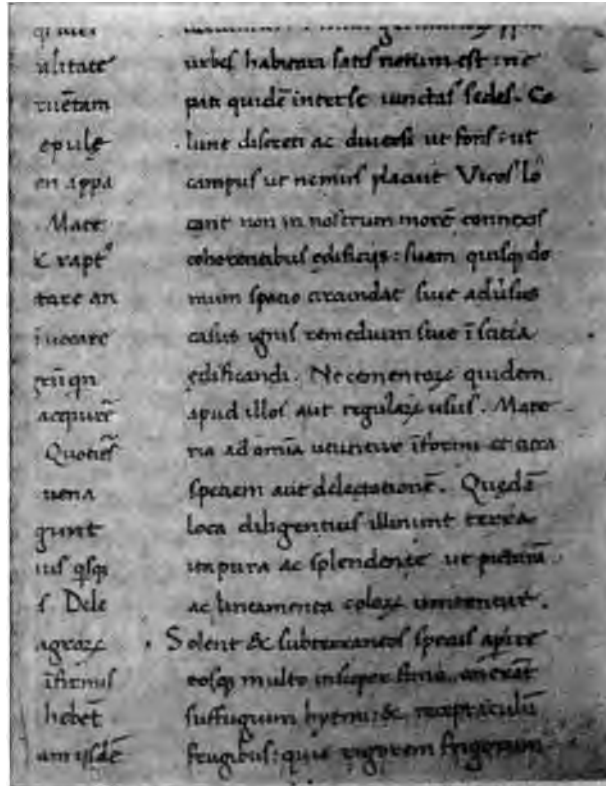 ulitate
ruētam
epulę
en appa
Mate
& rapt
tare an
iuocare
acquirē
Quotiēs
uena
gunt
ius qsq
s Dele
agroꝝ
īfirmis
hebēt
am iisdē
urbes habitari satis notum est: ne
pati quidē inter se iunctas sedes. Co
lunt discreti ac diuersi ut fons: ut
campus ut nemus placuit Vicos lo
cant non in nostrum morē connexis
coherentibus edificijs: suam quisq do
mum spacio circumdat siue aduersus
casus ignis remedium siue īscitia
ędificandi. Ne cementoꝝ quidem
apud illos aut regulaꝝ usus. Mate
ria ad omīa utuntur īformi et citra
speciem aut delectationē. Quędā
loca diligentius illinunt terra
ita pura ac splendente ut picturā
ac lineamenta coloꝝ imitentur.
Solent & subterraneos specus apire
eosq multo insuper fimo onerāt
suffugium hyemi: & receptaculū
frugibus: quia rigorem frigorum